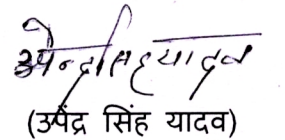 उपेन्द्र सिंह यादव
(उपेंद्र सिंह यादव)